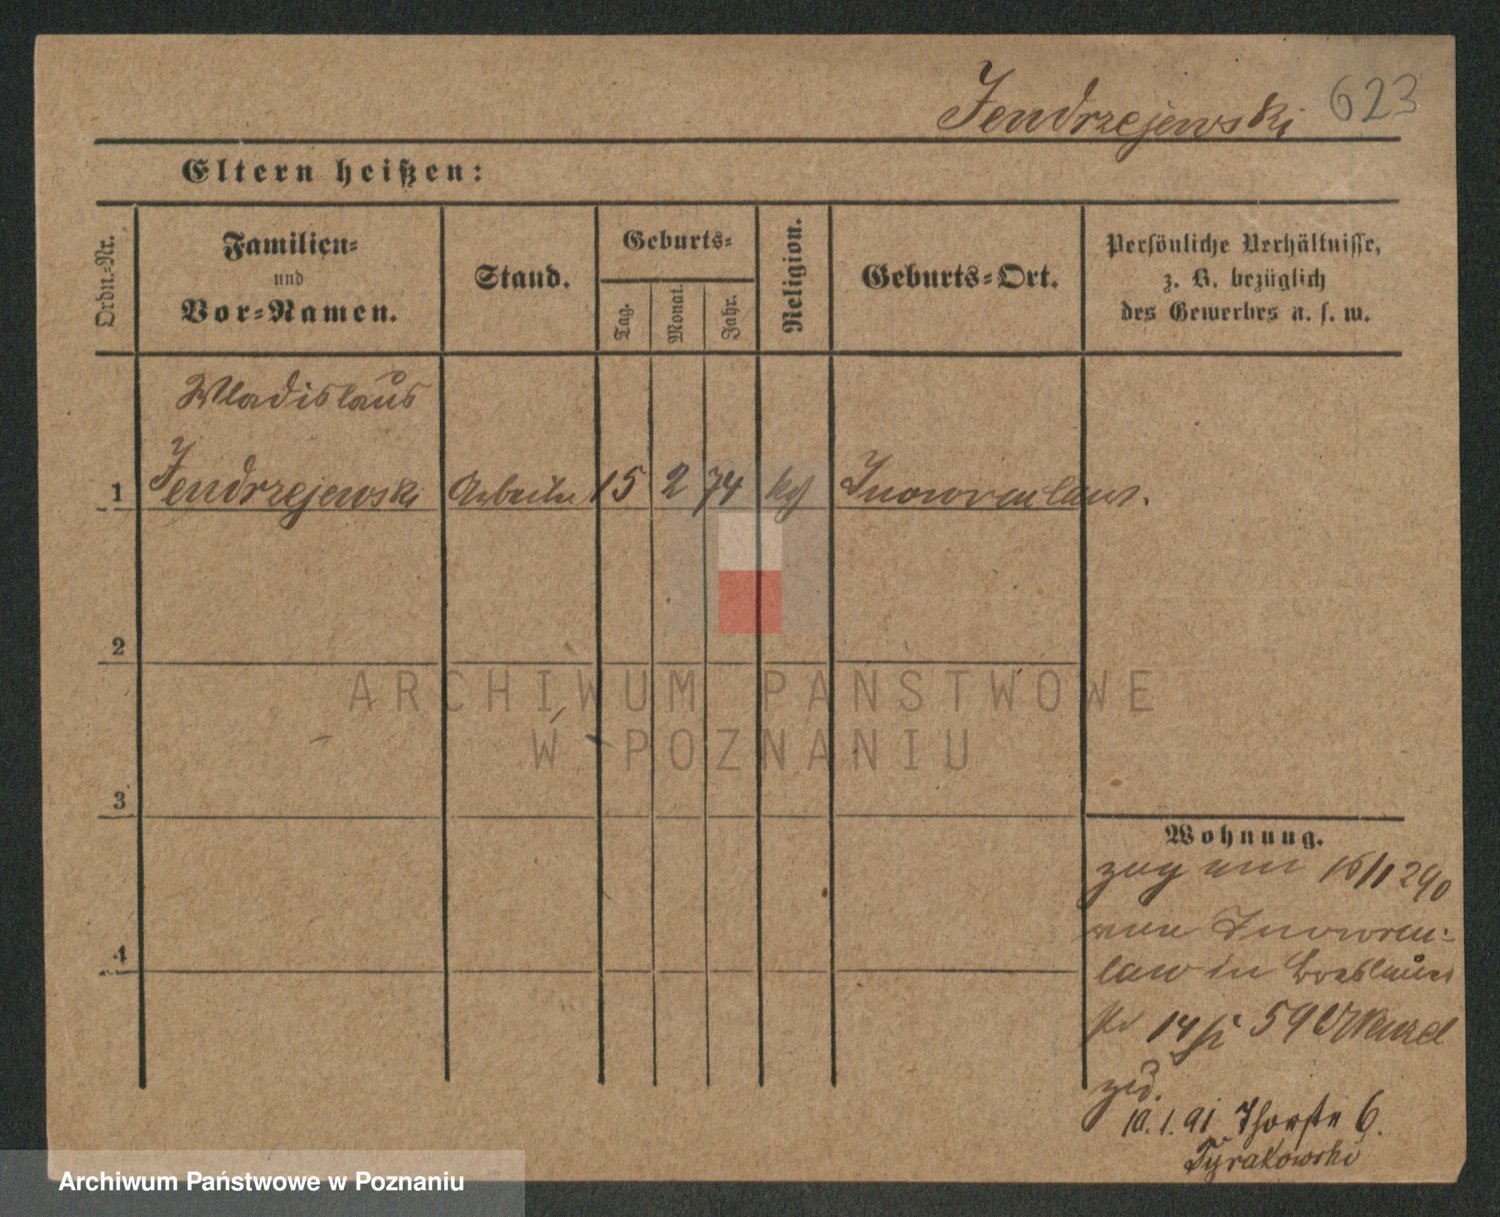 Jendrzejewski 623
Eltern heißen:
Ordn.-Nr.
Familien-
und
Vor-Namen.
Stand.
Geburts-
Tag.
Monat.
Jahr.
Religion.
Geburts-Ort.
Persönliche Verhältnisse,
z. B. bezüglich
des Gewerbes u. s. w.
Wladislaus
1 Jendrzejewski Arbeiter 15 2 74 kth Inowrazlaw.
2
ARCHIWUM PAŃSTWOWE
W POZNANIU
3
Wohnung.
zog am 15/12 90
von Inowraz-
law in Breslauer
str 14 59
4
zu
10.1.91 Thorstr 6.
Tyrakowski
Archiwum Państwowe w Poznaniu